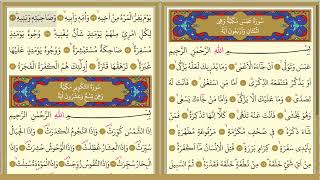 سُورَةُ عَبَسَ مَكِّيَّةٌ وَهِيَ
اثْنَتَانِ وَأَرْبَعُونَ آيَةً
بِسْمِ اللَّهِ الرَّحْمَٰنِ الرَّحِيمِ
عَبَسَ وَتَوَلَّىٰ ۝ أَن جَاءَهُ الْأَعْمَىٰ ۝ وَمَا يُدْرِيكَ لَعَلَّهُ يَزَّكَّىٰ ۝
أَوْ يَذَّكَّرُ فَتَنفَعَهُ الذِّكْرَىٰ ۝ أَمَّا مَنِ اسْتَغْنَىٰ ۝ فَأَنتَ لَهُ
تَصَدَّىٰ ۝ وَمَا عَلَيْكَ أَلَّا يَزَّكَّىٰ ۝ وَأَمَّا مَن جَاءَكَ يَسْعَىٰ ۝
وَهُوَ يَخْشَىٰ ۝ فَأَنتَ عَنْهُ تَلَهَّىٰ ۝ كَلَّا إِنَّهَا تَذْكِرَةٌ ۝ فَمَن شَاءَ
ذَكَرَهُ ۝ فِي صُحُفٍ مُّكَرَّمَةٍ ۝ مَّرْفُوعَةٍ مُّطَهَّرَةٍ ۝ بِأَيْدِي
سَفَرَةٍ ۝ كِرَامٍ بَرَرَةٍ ۝ قُتِلَ الْإِنسَانُ مَا أَكْفَرَهُ ۝
مِنْ أَيِّ شَيْءٍ خَلَقَهُ ۝ مِن نُّطْفَةٍ خَلَقَهُ فَقَدَّرَهُ ۝ ثُمَّ السَّبِيلَ
يَوْمَ يَفِرُّ الْمَرْءُ مِنْ أَخِيهِ ۝ وَأُمِّهِ وَأَبِيهِ ۝ وَصَاحِبَتِهِ وَبَنِيهِ ۝
لِكُلِّ امْرِئٍ مِّنْهُمْ يَوْمَئِذٍ شَأْنٌ يُغْنِيهِ ۝ وُجُوهٌ يَوْمَئِذٍ
مُّسْفِرَةٌ ۝ ضَاحِكَةٌ مُّسْتَبْشِرَةٌ ۝ وَوُجُوهٌ يَوْمَئِذٍ عَلَيْهَا
غَبَرَةٌ ۝ تَرْهَقُهَا قَتَرَةٌ ۝ أُولَٰئِكَ هُمُ الْكَفَرَةُ الْفَجَرَةُ ۝
سُورَةُ التَّكْوِيرِ مَكِّيَّةٌ
وَهِيَ تِسْعٌ وَعِشْرُونَ آيَةً
بِسْمِ اللَّهِ الرَّحْمَٰنِ الرَّحِيمِ
إِذَا الشَّمْسُ كُوِّرَتْ ۝ وَإِذَا النُّجُومُ انكَدَرَتْ ۝ وَإِذَا الْجِبَالُ
سُيِّرَتْ ۝ وَإِذَا الْعِشَارُ عُطِّلَتْ ۝ وَإِذَا الْوُحُوشُ حُشِرَتْ ۝ وَإِذَا
الْبِحَارُ سُجِّرَتْ ۝ وَإِذَا النُّفُوسُ زُوِّجَتْ ۝ وَإِذَا الْمَوْءُودَةُ سُئِلَتْ